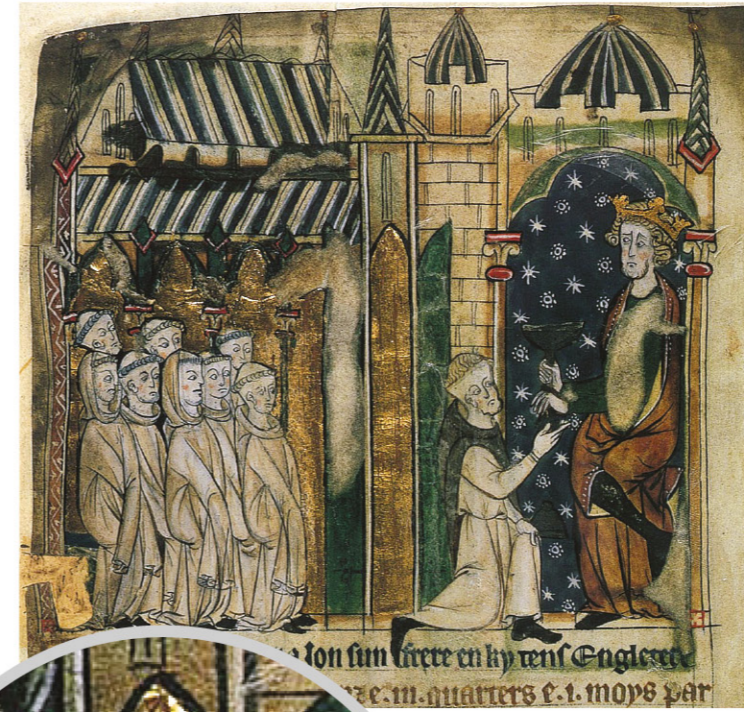 Jon sun frere en ky tens Engletere
e . m . quarters e . i . moys par